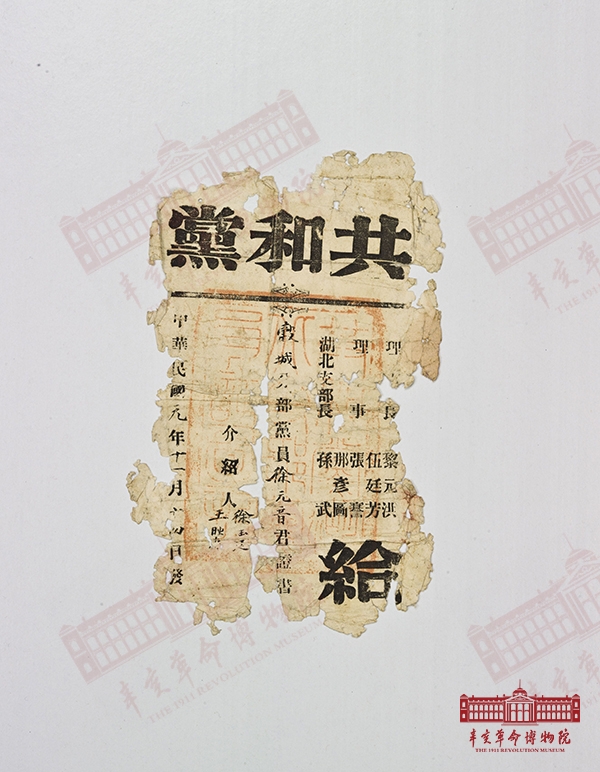 共和黨
理 長 黎元洪
理 事 伍廷芳 張謇 那彥圖
湖北支部長 孫武
給
穀城 部黨員徐元音君證書
介紹人 徐玉 王
中華民國元年十一月 日發
辛亥革命博物院
THE 1911 REVOLUTION MUSEUM